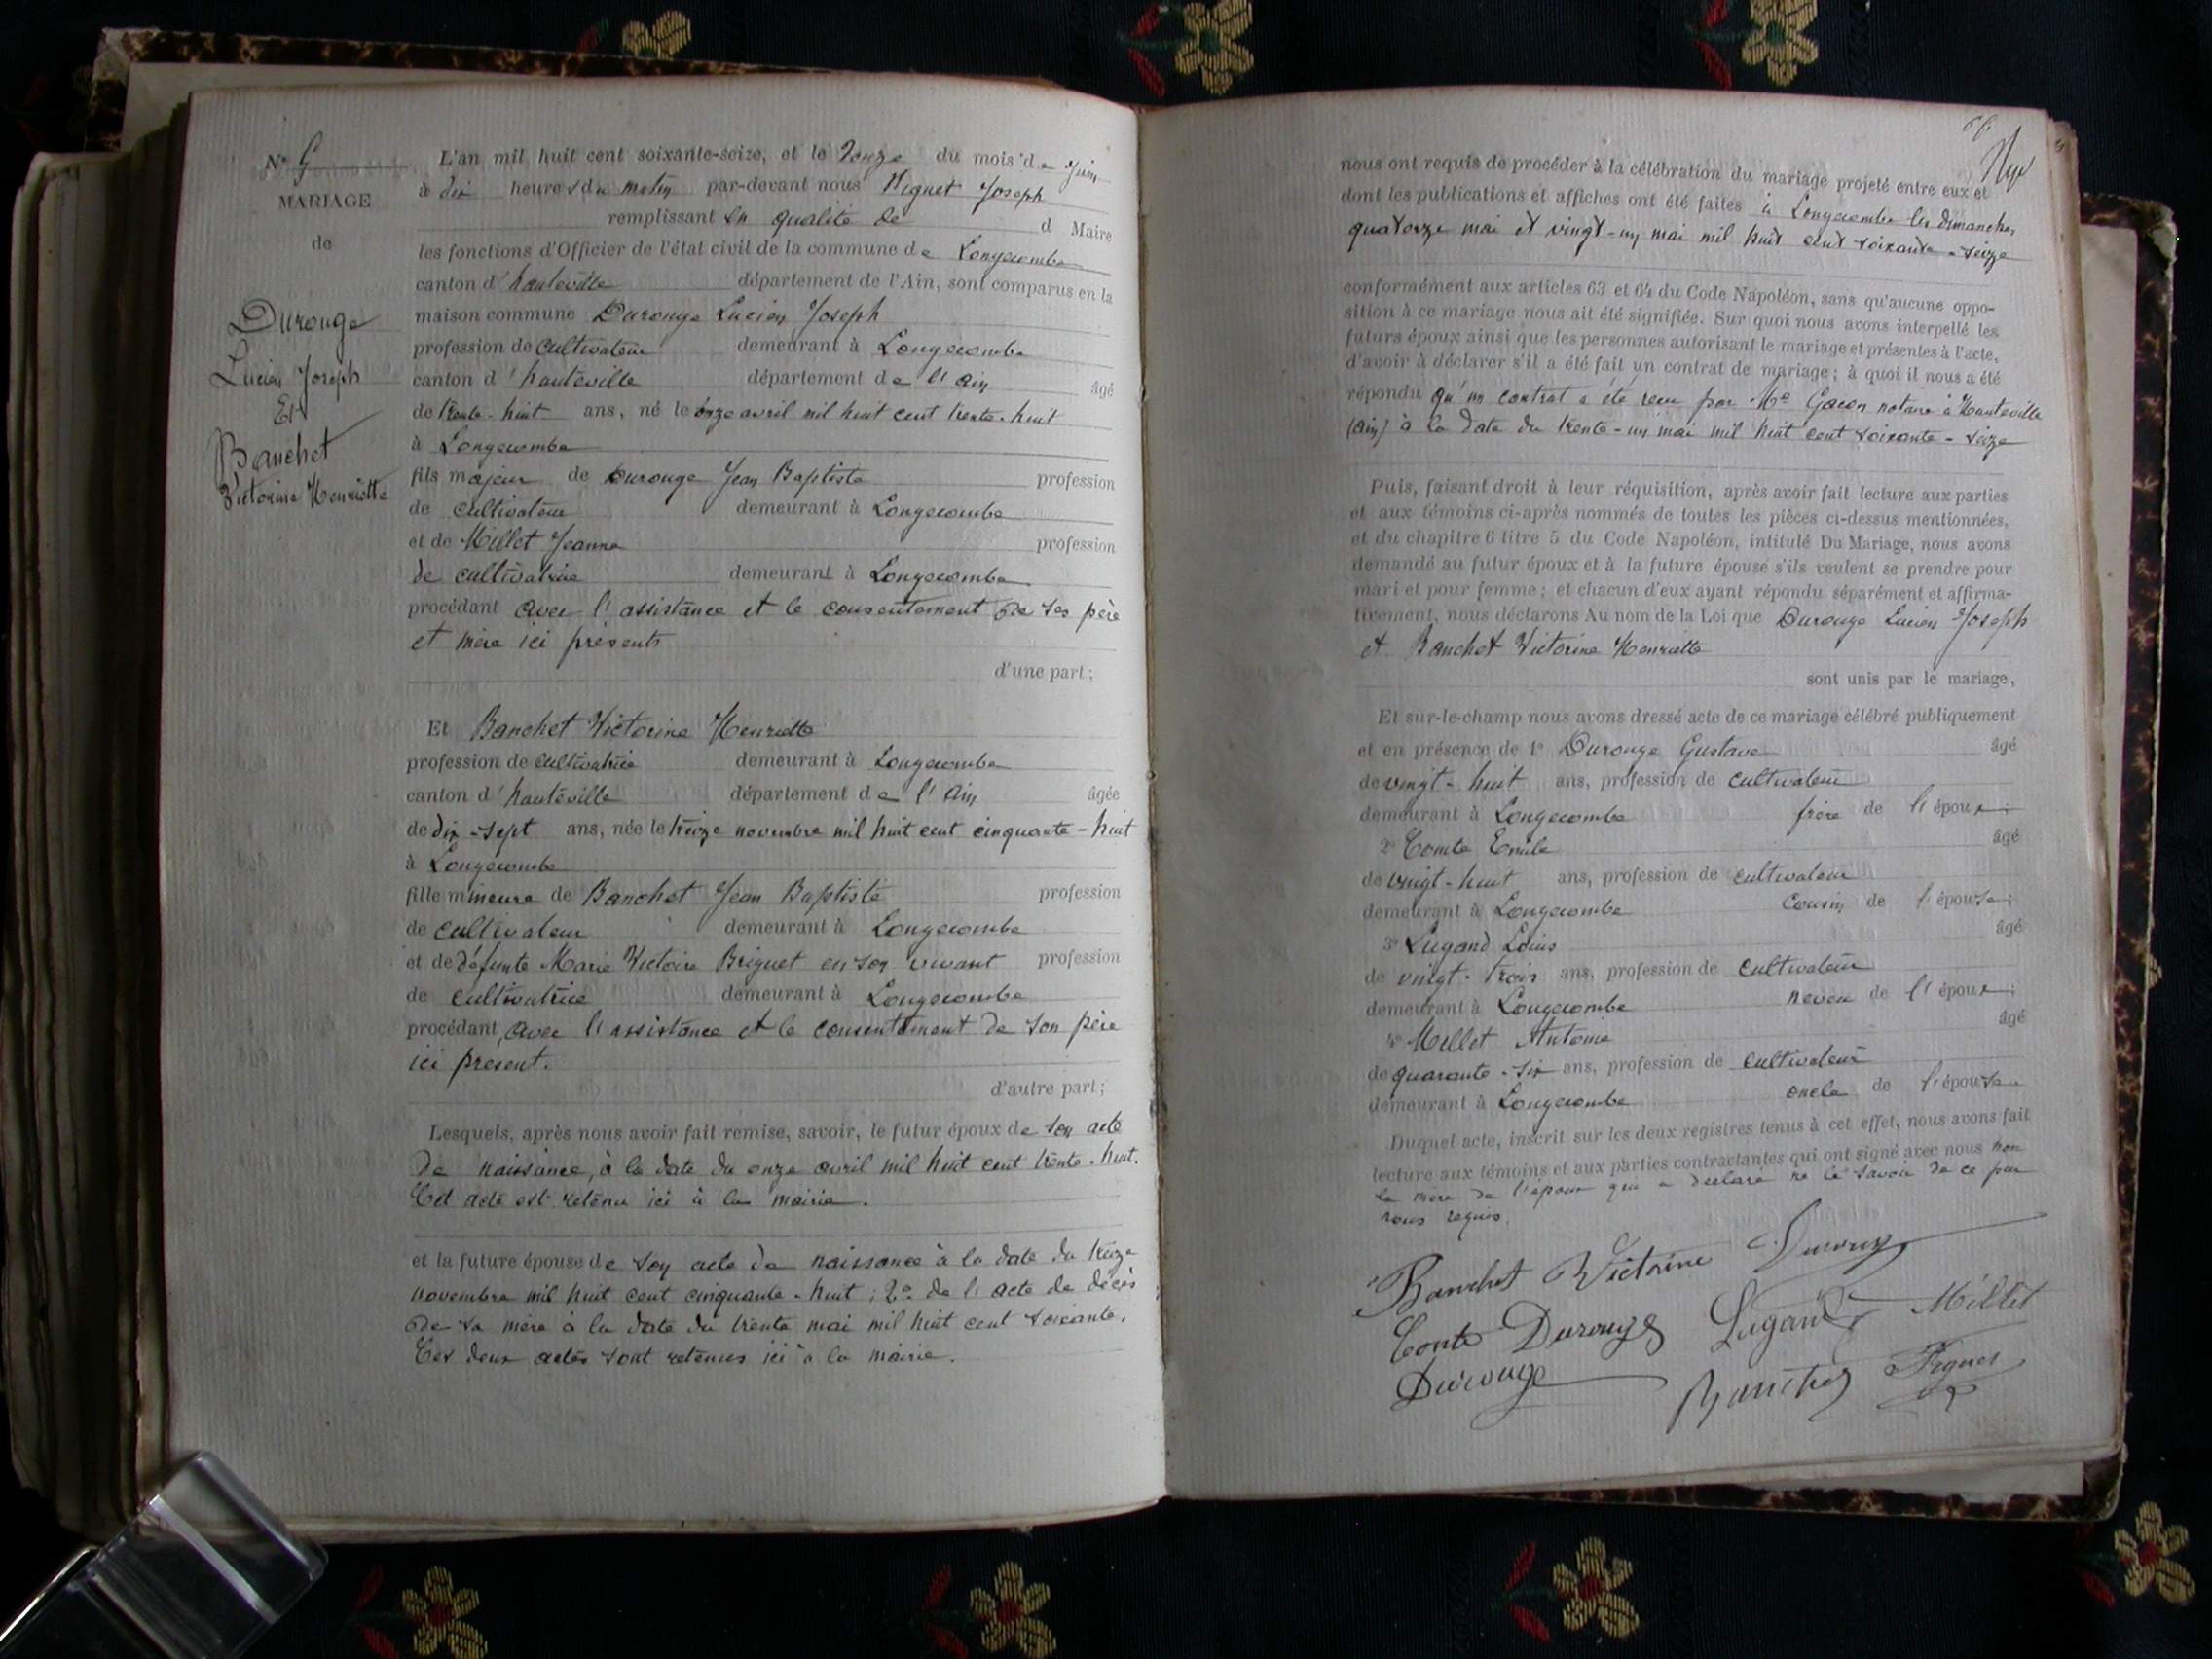 N° 6
MARIAGE
de
Durouge
Lucien Joseph
Et
Banchet
Victorine Henriette
L'an mil huit cent soixante-seize, et le douze du mois de juin
à dix heures du matin par-devant nous Piguet Joseph
remplissant en qualité de d Maire
les fonctions d'Officier de l'état civil de la commune de Longecombe
canton d'hauteville département de l'Ain, sont comparus en la
maison commune Durouge Lucien Joseph
profession de cultivateur demeurant à Longecombe
canton d'hauteville département de l'Ain âgé
de trente-huit ans, né le onze avril mil huit cent trente-huit
à Longecombe
fils majeur de Durouge Jean Baptiste profession
de cultivateur demeurant à Longecombe
et de Millet Jeanne profession
de cultivatrice demeurant à Longecombe
procédant avec l'assistance et le consentement de ses père
et mère ici présents
d'une part;
Et Banchet Victorine Henriette
profession de cultivatrice demeurant à Longecombe
canton d'hauteville département de l'Ain âgée
de dix-sept ans, née le treize novembre mil huit cent cinquante-huit
à Longecombe
fille mineure de Banchet Jean Baptiste profession
de cultivateur demeurant à Longecombe
et de défunte Marie Victoire Briguet en son vivant profession
de cultivatrice demeurant à Longecombe
procédant avec l'assistance et le consentement de son père
ici présent.
d'autre part;
Lesquels, après nous avoir fait remise, savoir, le futur époux de son acte
de naissance, à la date du onze avril mil huit cent trente-huit.
Cet acte est retenu ici à la mairie.
et la future épouse de son acte de naissance à la date du treize
novembre mil huit cent cinquante-huit; 2° de l'acte de décès
de sa mère à la date du trente mai mil huit cent soixante.
Ces deux actes sont retenus ici à la mairie.
nous ont requis de procéder à la célébration du mariage projeté entre eux et
dont les publications et affiches ont été faites à Longecombe les dimanches
quatorze mai et vingt-un mai mil huit cent soixante-seize
conformément aux articles 63 et 64 du Code Napoléon, sans qu'aucune oppo-
sition à ce mariage nous ait été signifiée. Sur quoi nous avons interpellé les
futurs époux ainsi que les personnes autorisant le mariage et présentes à l'acte,
d'avoir à déclarer s'il a été fait un contrat de mariage; à quoi il nous a été
répondu qu'un contrat a été reçu par Me Gacon notaire à Hauteville
(Ain) à la date du trente-un mai mil huit cent soixante-seize
Puis, faisant droit à leur réquisition, après avoir fait lecture aux parties
et aux témoins ci-après nommés de toutes les pièces ci-dessus mentionnées,
et du chapitre 6 titre 5 du Code Napoléon, intitulé Du Mariage, nous avons
demandé au futur époux et à la future épouse s'ils veulent se prendre pour
mari et pour femme; et chacun d'eux ayant répondu séparément et affirma-
tivement, nous déclarons Au nom de la Loi que Durouge Lucien Joseph
et Banchet Victorine Henriette
sont unis par le mariage,
Et sur-le-champ nous avons dressé acte de ce mariage célébré publiquement
et en présence de 1° Durouge Gustave âgé
de vingt-huit ans, profession de cultivateur
demeurant à Longecombe frère de l'époux;
2° Comte Emile âgé
de vingt-huit ans, profession de cultivateur
demeurant à Longecombe cousin de l'épouse;
3° Lugand Louis âgé
de vingt-trois ans, profession de cultivateur
demeurant à Longecombe neveu de l'époux;
4° Millet Antoine âgé
de quarante-six ans, profession de cultivateur
demeurant à Longecombe oncle de l'épouse
Duquel acte, inscrit sur les deux registres tenus à cet effet, nous avons fait
lecture aux témoins et aux parties contractantes qui ont signé avec nous non
la mère de l'époux qui a déclaré ne le savoir de ce par
nous requis.
Banchet Victorine Durouge
Comte Durouge Lugand Millet
Durouge Banchet Piguet